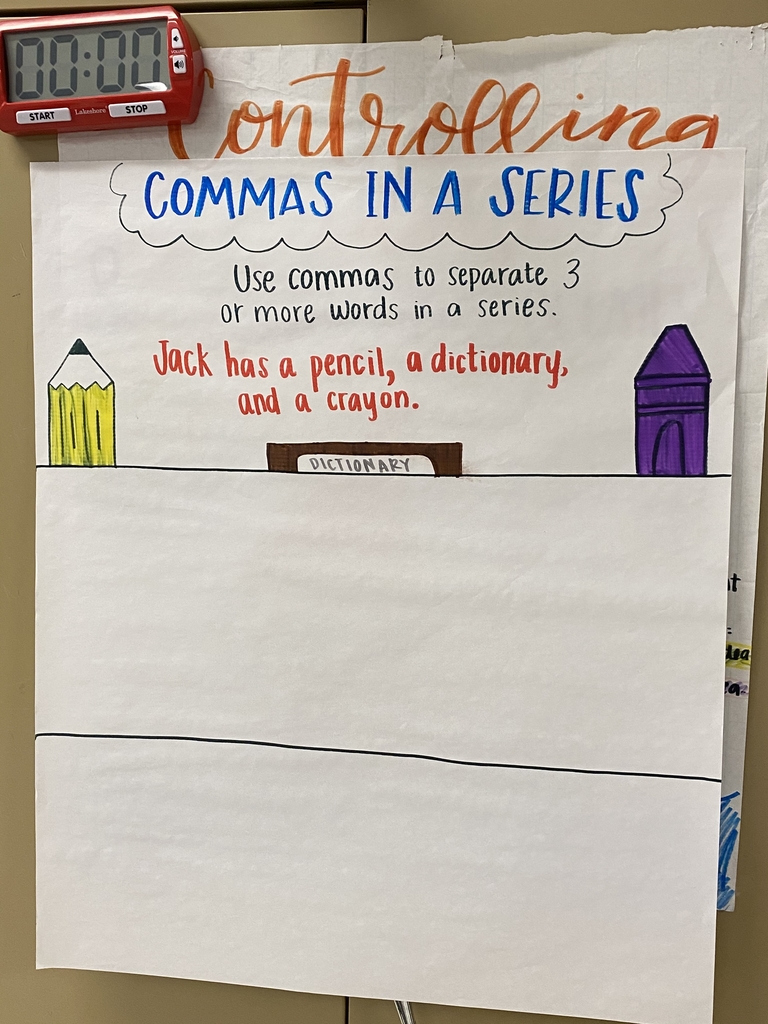 00:00
START Lakeshore STOP
VOLUME
Controlling
COMMAS IN A SERIES
Use commas to separate 3
or more words in a series.
Jack has a pencil, a dictionary,
and a crayon.
DICTIONARY